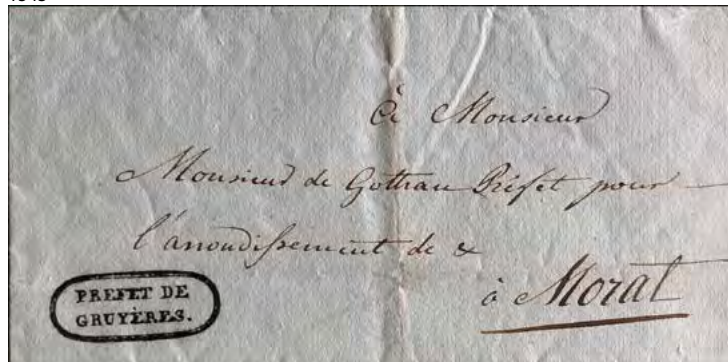 à Monsieur
Monsieur de Gottrau Préfet pour
l'arrondissement de &
à Morat
PREFET DE
GRUYÈRES.